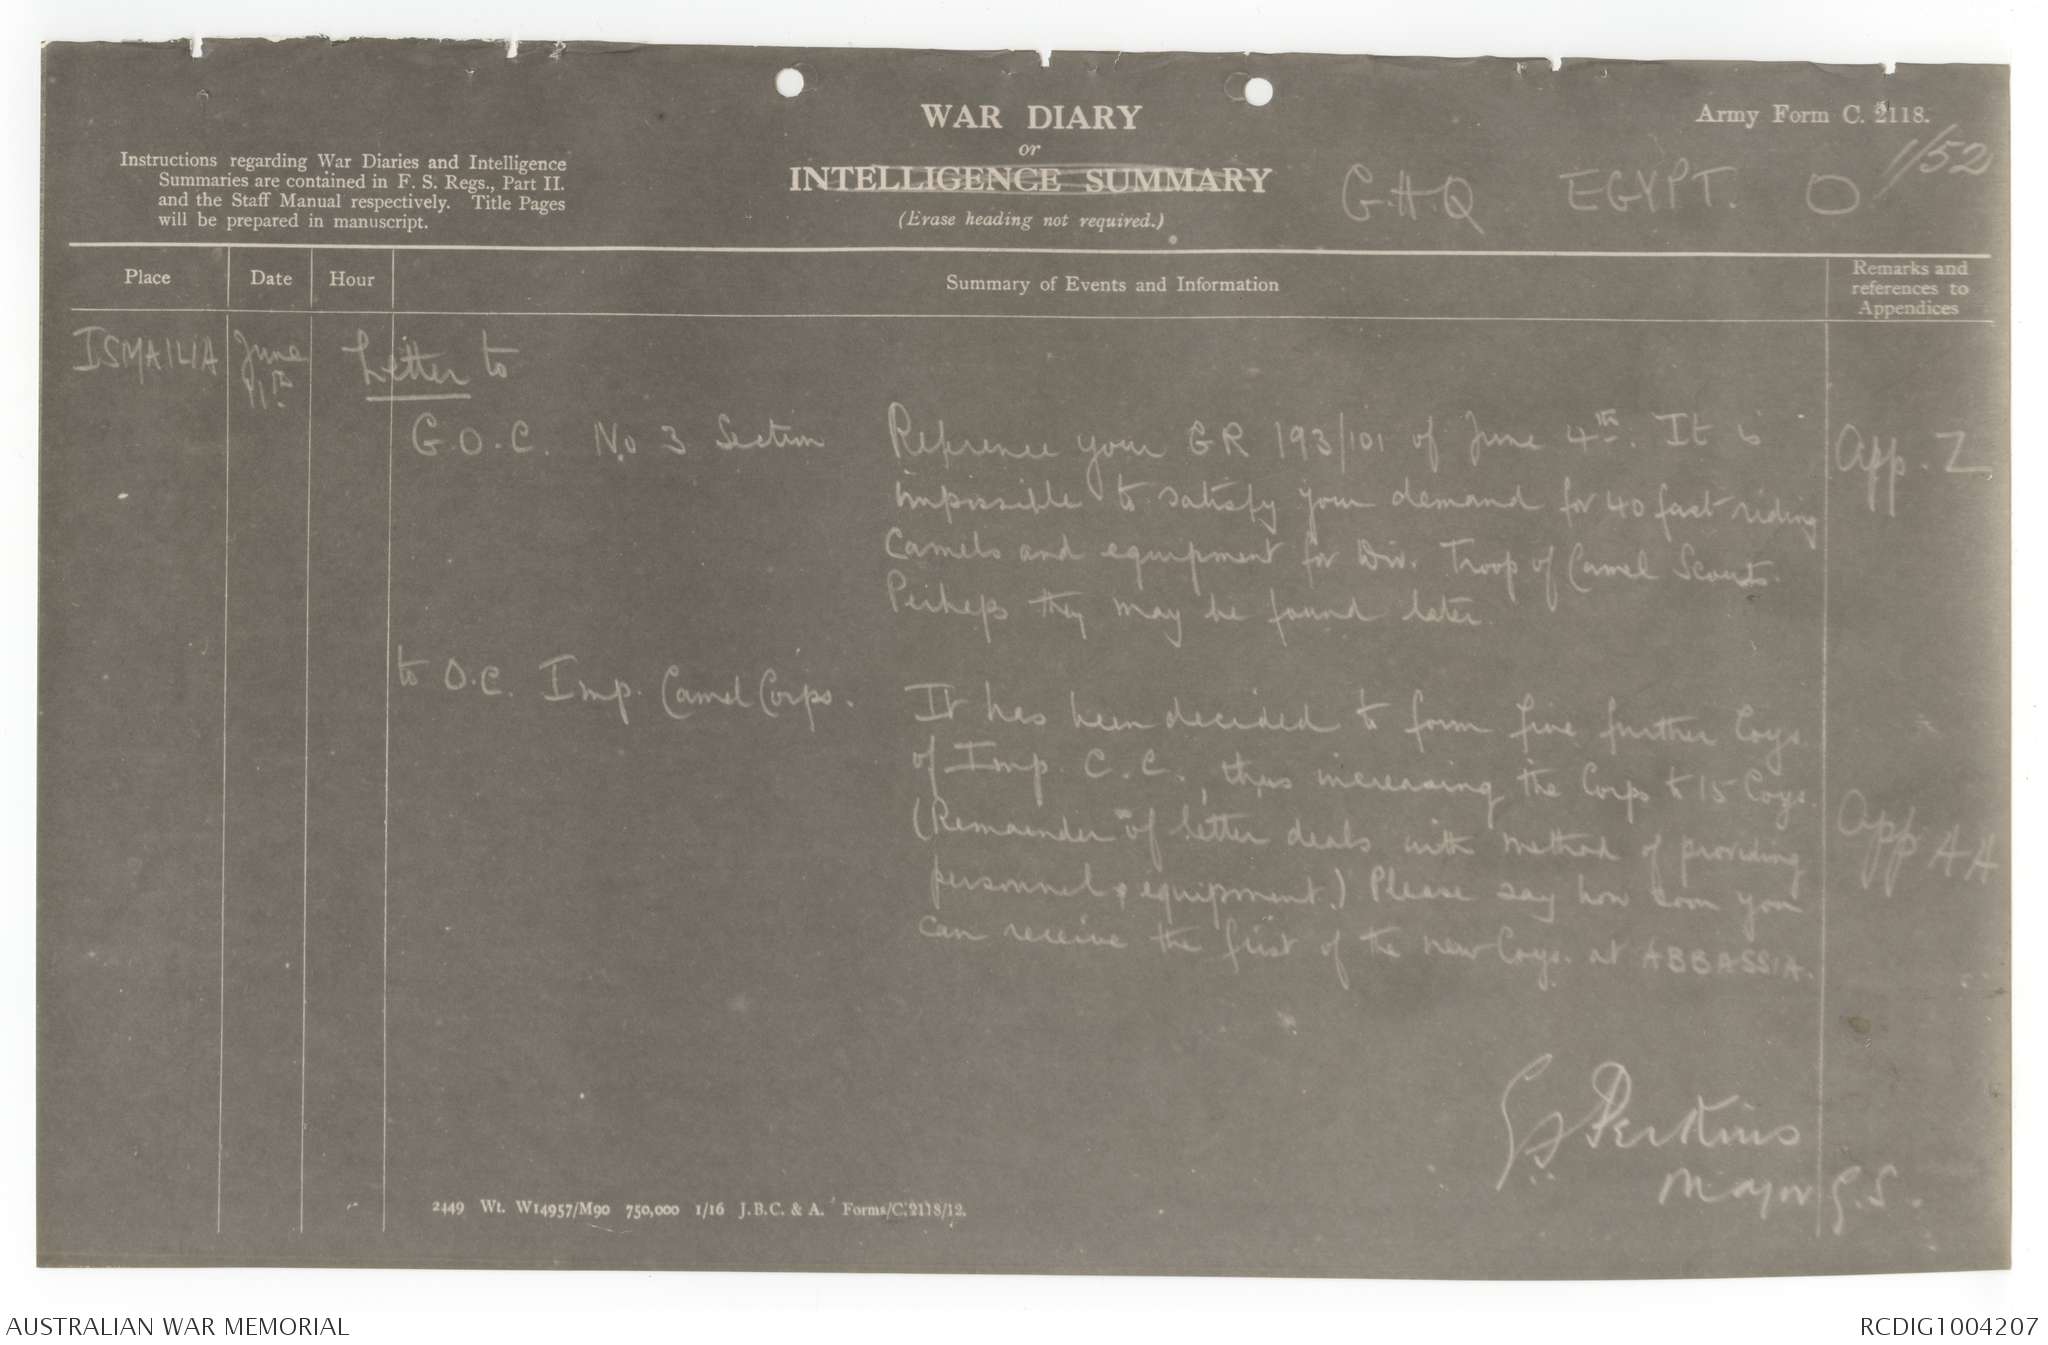 WAR DIARY
or
INTELLIGENCE SUMMARY
(Erase heading not required.)
Army Form C. 2118.
Instructions regarding War Diaries and Intelligence
Summaries are contained in F. S. Regs., Part II.
and the Staff Manual respectively. Title Pages
will be prepared in manuscript.
G.H.Q EGYPT. O 1/52
Place Date Hour Summary of Events and Information Remarks and
references to
Appendices
ISMAILIA June Letter to
11th
G.O.C. No 3 Section Reference your GR 193/101 of June 4th. It is App. Z
impossible to satisfy your demand for 40 fast riding
Camels and equipment for Div. Troop of Camel Scouts.
Perhaps they may be found later.
to O.C. Imp. Camel Corps. It has been decided to form five further Coys.
of Imp. C.C., thus increasing the Corps to 15 Coys.
(Remainder of letter deals with method of providing App AA
personnel & equipment.) Please say how soon you
can receive the first of the new Coys. at ABBASSIA.
Perkins
Major G.S.
2449 Wt. W14957/M90 750,000 1/16 J.B.C. & A. Forms/C.2118/12.
AUSTRALIAN WAR MEMORIAL RCDIG1004207